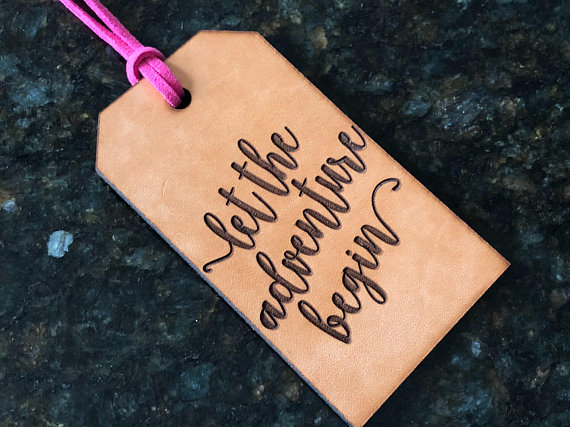 let the
adventure
begin